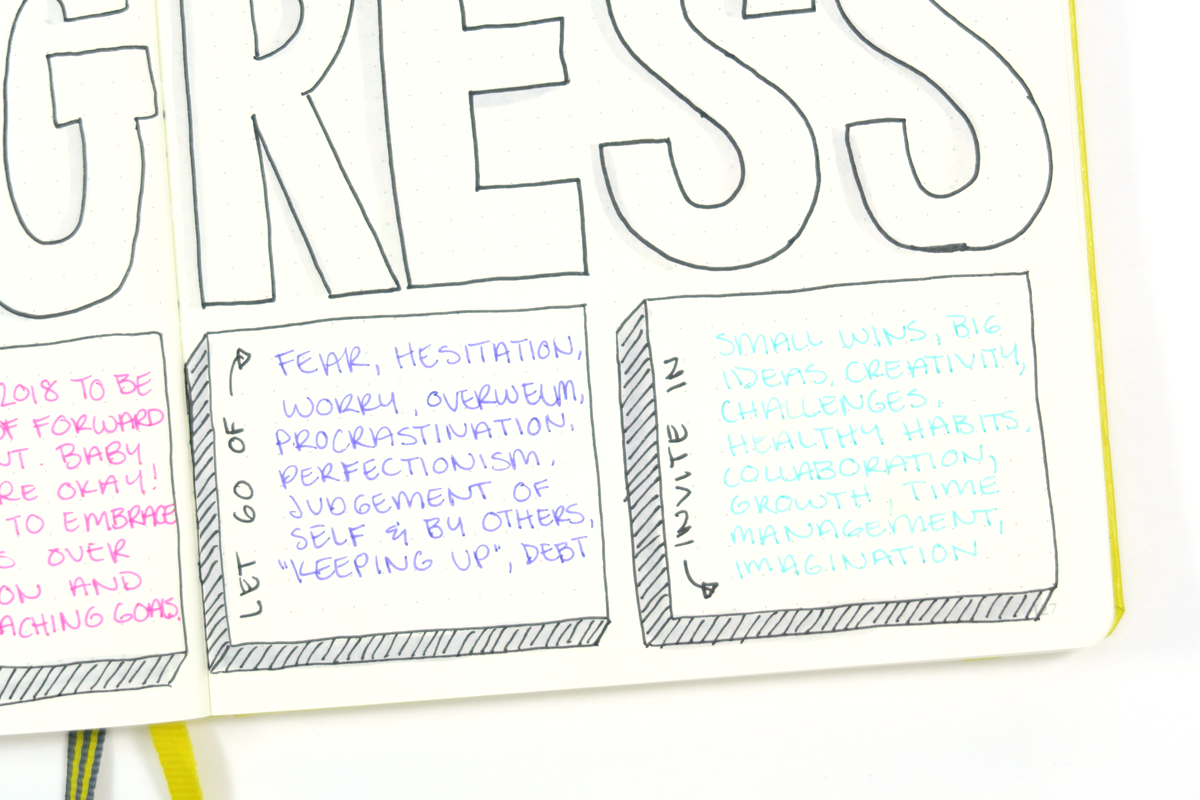 GRESS
2018 TO BE
OF FORWARD
NT. BABY
RE OKAY!
TO EMBRACE
S OVER
ON AND
ACHING GOALS.
LET GO OF
FEAR, HESITATION,
WORRY, OVERWELM,
PROCRASTINATION,
PERFECTIONISM,
JUDGEMENT OF
SELF & BY OTHERS,
"KEEPING UP", DEBT
INVITE IN
SMALL WINS, BIG
IDEAS, CREATIVITY,
CHALLENGES,
HEALTHY HABITS,
COLLABORATION,
GROWTH, TIME
MANAGEMENT,
IMAGINATION